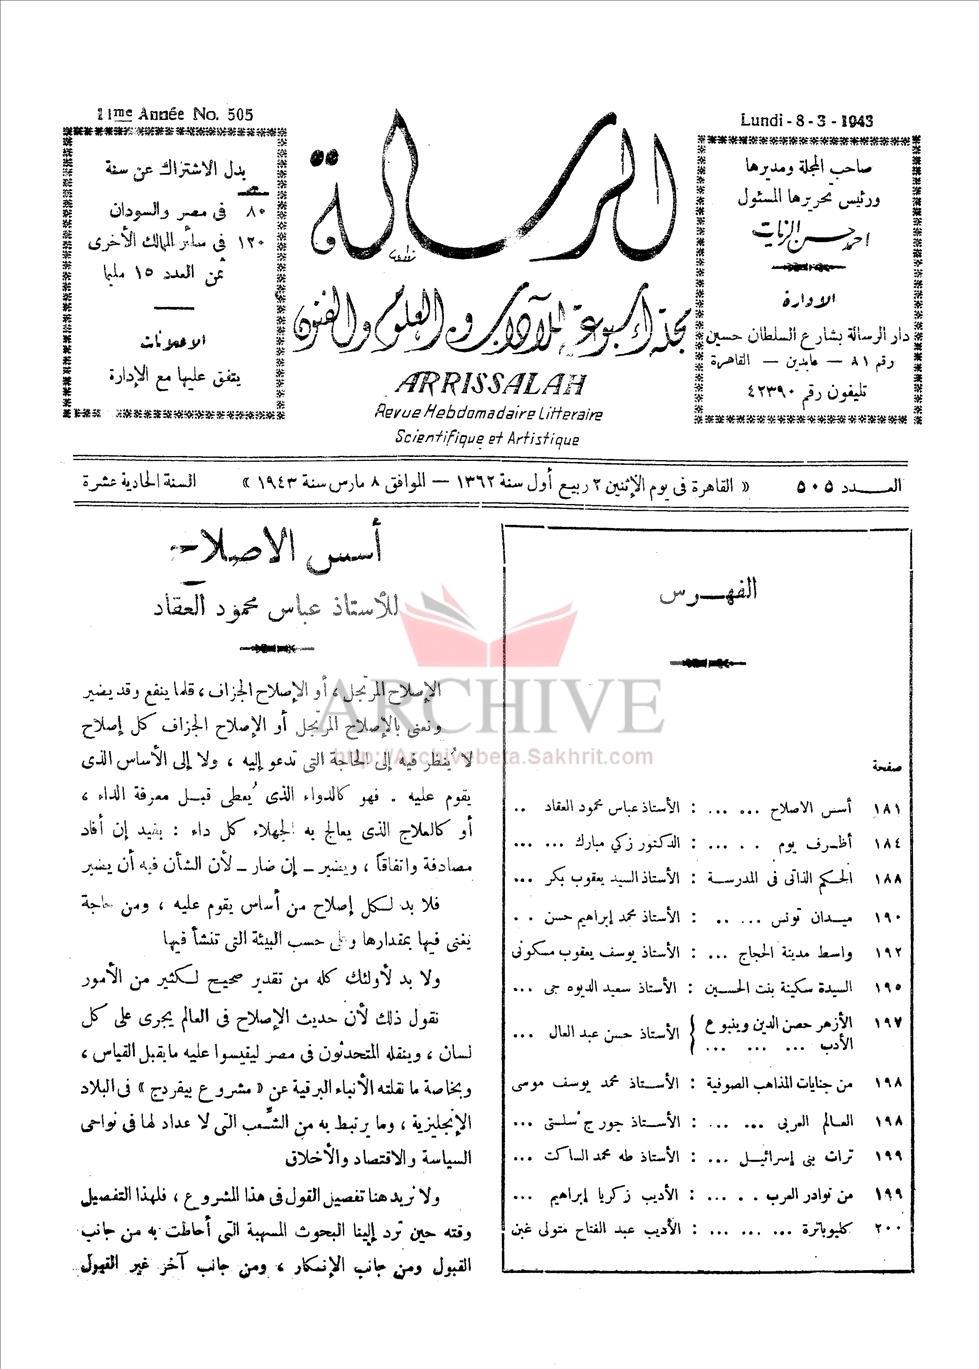 Lundi - 8 - 3 - 1943
صاحب المجلة ومديرها
ورئيس تحريرها المسئول
احمد حسن الزيات
الادارة
دار الرسالة بشارع السلطان حسين
رقم ٨١ — عابدين — القاهرة
تليفون رقم ٤٢٣٩٠
الرسالة
مجلة أسبوعية للآداب والعلوم والفنون
ARRISSALAH
Revue Hebdomadaire Litteraire
Scientifique et Artistique
11me Année No. 505
بدل الاشتراك عن سنة
٨٠ فى مصر والسودان
١٢٠ فى سائر الممالك الأخرى
ثمن العدد ١٥ مليما
الاعلانات
يتفق عليها مع الإدارة
العـــدد ٥٠٥ « القاهرة فى يوم الإثنين ٢ ربيع أول سنة ١٣٦٢ — الموافق ٨ مارس سنة ١٩٤٣ » السنة الحادية عشرة
الفهـــرس
صفحة
١٨١ أسس الاصلاح ... ... : الأستاذ عباس محمود العقاد ..
١٨٤ أظـرف يوم . . ... : الدكتور زكي مبارك ... ...
١٨٨ الحكم الذاتى فى المدرسة : الأستاذ السيد يعقوب بكر ...
١٩٠ ميـدان تونس ... .. : الأستاذ محمد إبراهيم حسن . .
١٩٢ واسط مدينة الحجاج ... : الأستاذ يوسف يعقوب مسكونى
١٩٥ السيدة سكينة بنت الحسين : الأستاذ سعيد الديوه جى ...
١٩٧ الأزهر حصن الدين وينبوع
الأدب ... ... ... } الأستاذ حسن عبد العال ...
١٩٨ من جنايات المذاهب الصوفية : الأستـاذ محمد يوسف موسى
١٩٨ العـالم العربى ... ... : الأستـاذ جورج سلستى ...
١٩٩ تراث بنى إسرائيـل ... : الأستاذ طه محمد الساكت ...
١٩٩ من نوادر العرب . . ... : الأديب زكريا إبراهيم ...
٢٠٠ كليوباترة ... ... ... : الأديب عبد الفتاح متولى غبن
أسس الاصلاح
للأستاذ عباس محمود العقاد
الإصلاح المرتجل ، أو الإصلاح الجزاف ، قلما ينفع وقد يضير
ونعنى بالإصلاح المرتجل أو الإصلاح الجزاف كل إصلاح
لا يُنظر فيه إلى الحاجة التى تدعو إليه ، ولا إلى الأساس الذى
يقوم عليه . فهو كالدواء الذى يُعطى قبـل معرفة الداء ،
أو كالعلاج الذى يعالج به الجهلاء كل داء : يفيد إن أفاد
مصادفة واتفاقاً ، ويضير ـ إن ضار ـ لأن الشأن فيه أن يضير
فلا بد لـكل إصلاح من أساس يقوم عليه ، ومن حاجة
يغنى فيها بمقدارها وعلى حسب البيئة التى تنشأ فيها
ولا بد لأولئك كله من تقدير صحيح لـكثير من الأمور
نقول ذلك لأن حديث الإصلاح فى العالم يجرى على كل
لسان ، وينقله المتحدثون فى مصر ليقيسوا عليه ما يقبل القياس ،
وبخاصة ما نقلته الأنباء البرقية عن « مشروع بيفردج » فى البلاد
الإنجليزية ، وما يرتبط به من الشُّعب التى لا عداد لها فى نواحى
السياسة والاقتصاد والأخلاق
ولا نريد هنا تفصيل القول فى هذا المشروع ، فلهذا التفصيل
وقته حين ترد إلينا البحوث المسهبة التى أحاطت به من جانب
القبول ومن جانب الإنـكار ، ومن جانب آخر غير القبول
ARCHIVE
http://Archivebeta.Sakhrit.com